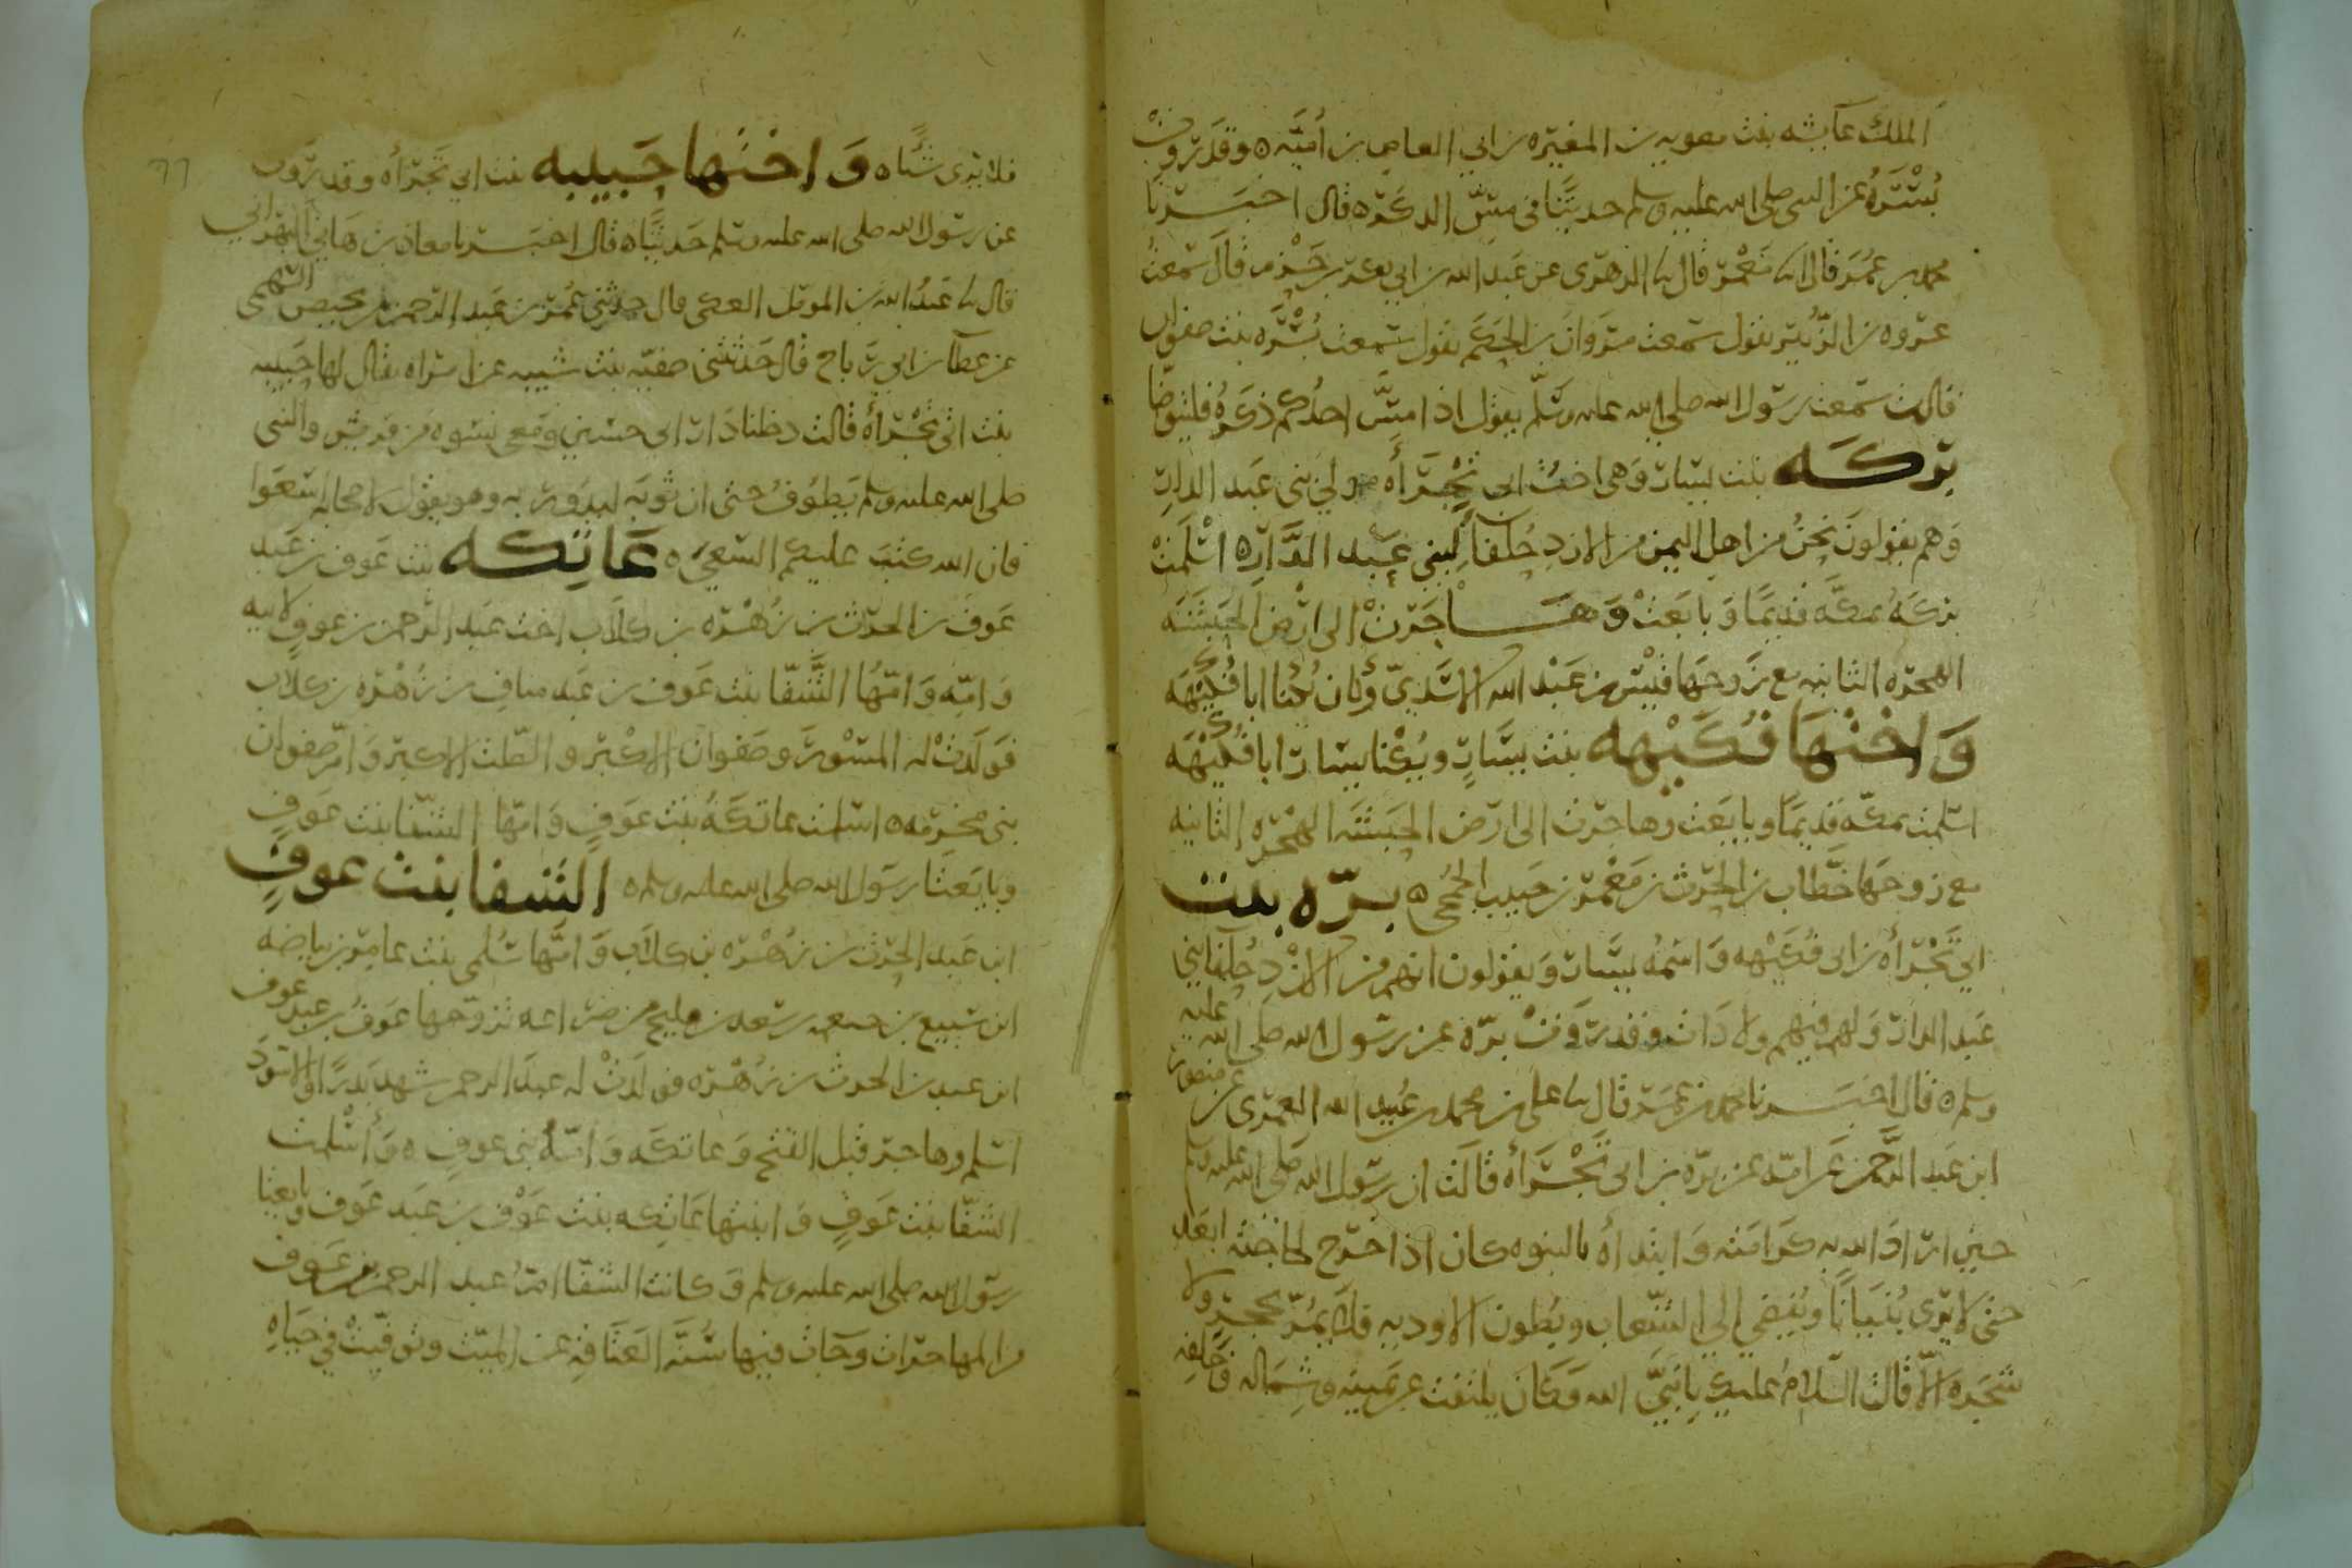 الملك عايشه بنت معويه بن المغيره بن ابي العاص بن أميّه ه وقد رَوت
بُسْرَهُ عن النبي صلى الله عليه وسلم حديثًا في مسّ الذكر ه قال اخبرنا
محمد بن عُمَر قال انا مَعْمر قال نا الزهري عن عَبد الله بن ابي بكر بن حَزْم قال سَمعتُ
عروه بن الزُّبير يقول سَمعت مروان بن الحَكم يقول سَمعت بُسْرَه بنت صفوان
قالت سَمعت رسول الله صلى الله عليه وسلّم يقول اذا مسَّ احدُكم ذكرهُ فليتوضّا
بَركَه بنت يسَار وَهي اختُ ابي تَجْرأه مولى بني عَبد الدار
وَهم يقولونَ نحنُ من اهل اليمن من الازدِ حُلفآ لبني عَبْد الدَّار ه اسْلَمَتْ
بركهُ بمكّه قديمًا وَبايَعَتْ وَهَاجَرَتْ الى ارْض الحَبَشَه
الهجرَه الثانيه مع زَوجهَا قيْس بن عَبْد الله الاسَديّ وكان يُكنا ابا فُكَيْهَه
وَاخْتها فُكَيْهه بنت يسَارٍ ويُكْنا يسَار ابا فُكَيْهَه
اسلمت بمكّه قديمًا وبايَعت وهاجرت الى ارض الحَبشَه الهجْرَه الثانيه
مع زوجهَا حَطّاب بن الحرث بن مَعْمر بن حَبيب الجُمحي ه بَرّه بنت
ابي تَجْرأه بن ابي فُكَيْهه وَاسمُه يسَار وَيقولون انهم من الازْدِ حُلفآ بني
عَبد الدار وَلهم فيهم ولادَات وقد رَوَتْ برّه عن رسول الله صلى الله عليه
وسلم ه قال اخبَرنا محمد بن عُمَر قال نا علي بن محمد بن عُبيد الله العمَري عن منصور
ابن عَبد الرَّحمن عَن امّه عن برّه بن ابي تَجْرَأه قالت ان رسول الله صلى الله عليه وسلم
حين ارَادَ الله به كرَامته وَابتداه بالنبوه كان اذا خرَج لحاجته ابعَد
حتى لا يَرى بُنيَانًا ويُفضي الى الشّعاب وبُطون الاوديه فلا يمُرّ بحَجرٍ ولا
شجَره الاّ قالت السّلام عليك يا نبيَّ الله وَكَانَ يلتفت عن يَمينه وشماله وَخَلفه
فلا يَرى شيًّا ه وَاختها حَبيبه بنت ابي تَجرأه وقد رَوَت
عن رسول الله صلى الله عليه وسلم حَديثًا ه قال اخبَرنا معاذ بن هاني البهراني
قال نا عَبدُ الله بن المومل المكي قال حدثني عُمَر بن عَبد الرّحمن بن محيصن السّهمي
عن عطآ بن ابي رَباح قال حَدثتني صفيّه بنت شيبه عن امرَاه يقال لها حَبيبه
بنت ابي تَجْرأه قالت دخلنا دَار ابي حسَين وَمعي نسوه من قريش والنبي
صلى الله عليه وسلم يَطوفُ حتى ان ثوبَه ليَدُور به وهو يقول لاصحابه اسْعَوا
فان الله كتبَ عليكم السَّعيَ ه عَاتِكه بنت عَوف بن عَبد
عَوف بن الحرث بن زُهْرَه بن كلاب اخت عَبد الرّحمن بن عَوفٍ لابيه
وَامّه وَامّهَا الشَّفّا بنت عَوف بن عَبد بن الحرث بن زُهْرَه بن كلاب
فوَلَدَتْ له المِسْوَرَ وصَفوان الاكْبر والصّلت الاكبر وَامّ صَفوان
بني مخرَمه ه اسلمت عاتكهُ بنت عَوفٍ وَامّها الشّفا بنت عَوفٍ
وبايَعَتَا رسَول الله صلى الله عليه وسلم ه الشفا بنت عوفٍ
ابن عَبد الحرث بن زُهْرَه بن كلاب وَامّها سَلمى بنت عامِر بن بياضَه
ابن سُبيع بن جعثمه بن سَعد بن مليح من خزاعه تزوّجها عَوف بن عبد عوف
ابن عبد بن الحرث بن زُهْرَه فولدَتْ له عَبدَ الرحمن شهد بَدرًا والاسَودَ
اسلم وهاجر قبل الفتح وَعاتكه وَامَهُ بني عوفٍ ه وَأسْلمت
الشّفّا بنت عَوفٍ وَابنتها عَاتِكه بنت عَوْف بن عَبد عَوف وبايعتا
رسَول الله صلى الله عليه وسلم وَكانت الشّفّا امُ عَبد الرحمن بن عَوف
من المهاجرَات وجَات فيها سُنَّه العَتاقه عن الميّت وتوفيّتْ في حيَاهِ